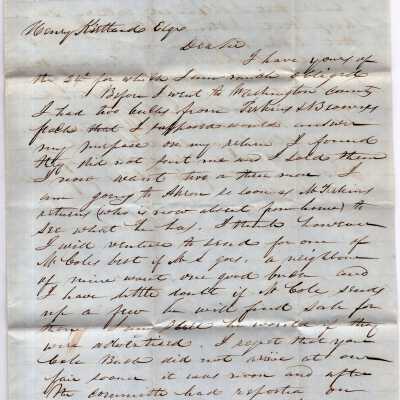 Henry Esqr
Dear Sir
I have yours of
the 24th for which I am much obliged
Before I went to Washington County
I had two bucks from Perkins & Browns
flock that I supposed would answer
my purpose on my return I found
they did not suit me and I sold them
I now want two or three more. I
am going to Akron so soon as Mr Perkins
returns (who is now absent from home) to
see what he has. I think however
I will venture to send for one of
Mr Coles best if Mr S goes. a neighbour
of mine wants one good buck and
I have little doubt if Mr Cole sends
up a few he will find sale for
them I am he would if they
were advertised. I regret that your
Cole Buck did not arrive at our
fair sooner it was noon and after
the committee had reported on